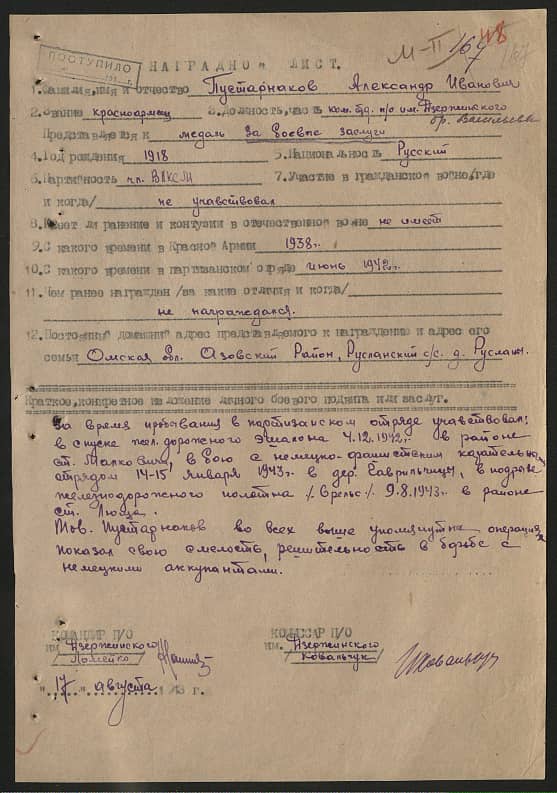 ПОСТУПИЛО
М-II 167 148
167
НАГРАДНОЙ ЛИСТ.
1. Фамилия, имя и отчество Пустарнаков Александр Иванович
2. Звание красноармеец 3. Должность, часть ком. отд. п/о им. Дзержинского
бр.
Представляется к медаль За боевые заслуги
4. Год рождения 1918 5. Национальность Русский
6. Партийность чл. ВЛКСМ 7. Участие в гражданской войне/где
и когда/ не учавствовал
8. Имеет ли ранение и контузии в отечественной войне не имеет
9. С какого времени в Красной Армии 1938 г.
10. С какого времени в партизанском отряде июнь 1942 г.
11. Чем ранее награжден /за какие отличия и когда/
не награждался.
12. Постоянный домашний адрес представляемого к награждению и адрес его
семьи Омская обл. Азовский Район, Русланский с/с. д. Русланы.
Краткое, конкретное изложение личного боевого подвига или заслуг.
За время пребывания в партизанском отряде учавствовал:
в спуске жел. дорожного эшалона 4.12.1942 г. в районе
ст. Малковичи, в бою с немецко-фашистским карательным
отрядом 14-15 января 1943 г. в дер. Гаврильчицы, в подрыве
железнодорожного полотна 9.8.1943 г. в районе
ст. Люща.
Тов. Пустарнаков во всех выше упомянутых операциях
показал свою смелость, решительность в борьбе с
немецкими аккупантами.
КОМАНДИР П/О КОМИССАР П/О
им. Дзержинского им. Дзержинского
/Ломейко/ /Ковальчук/
"17" августа 1943 г.